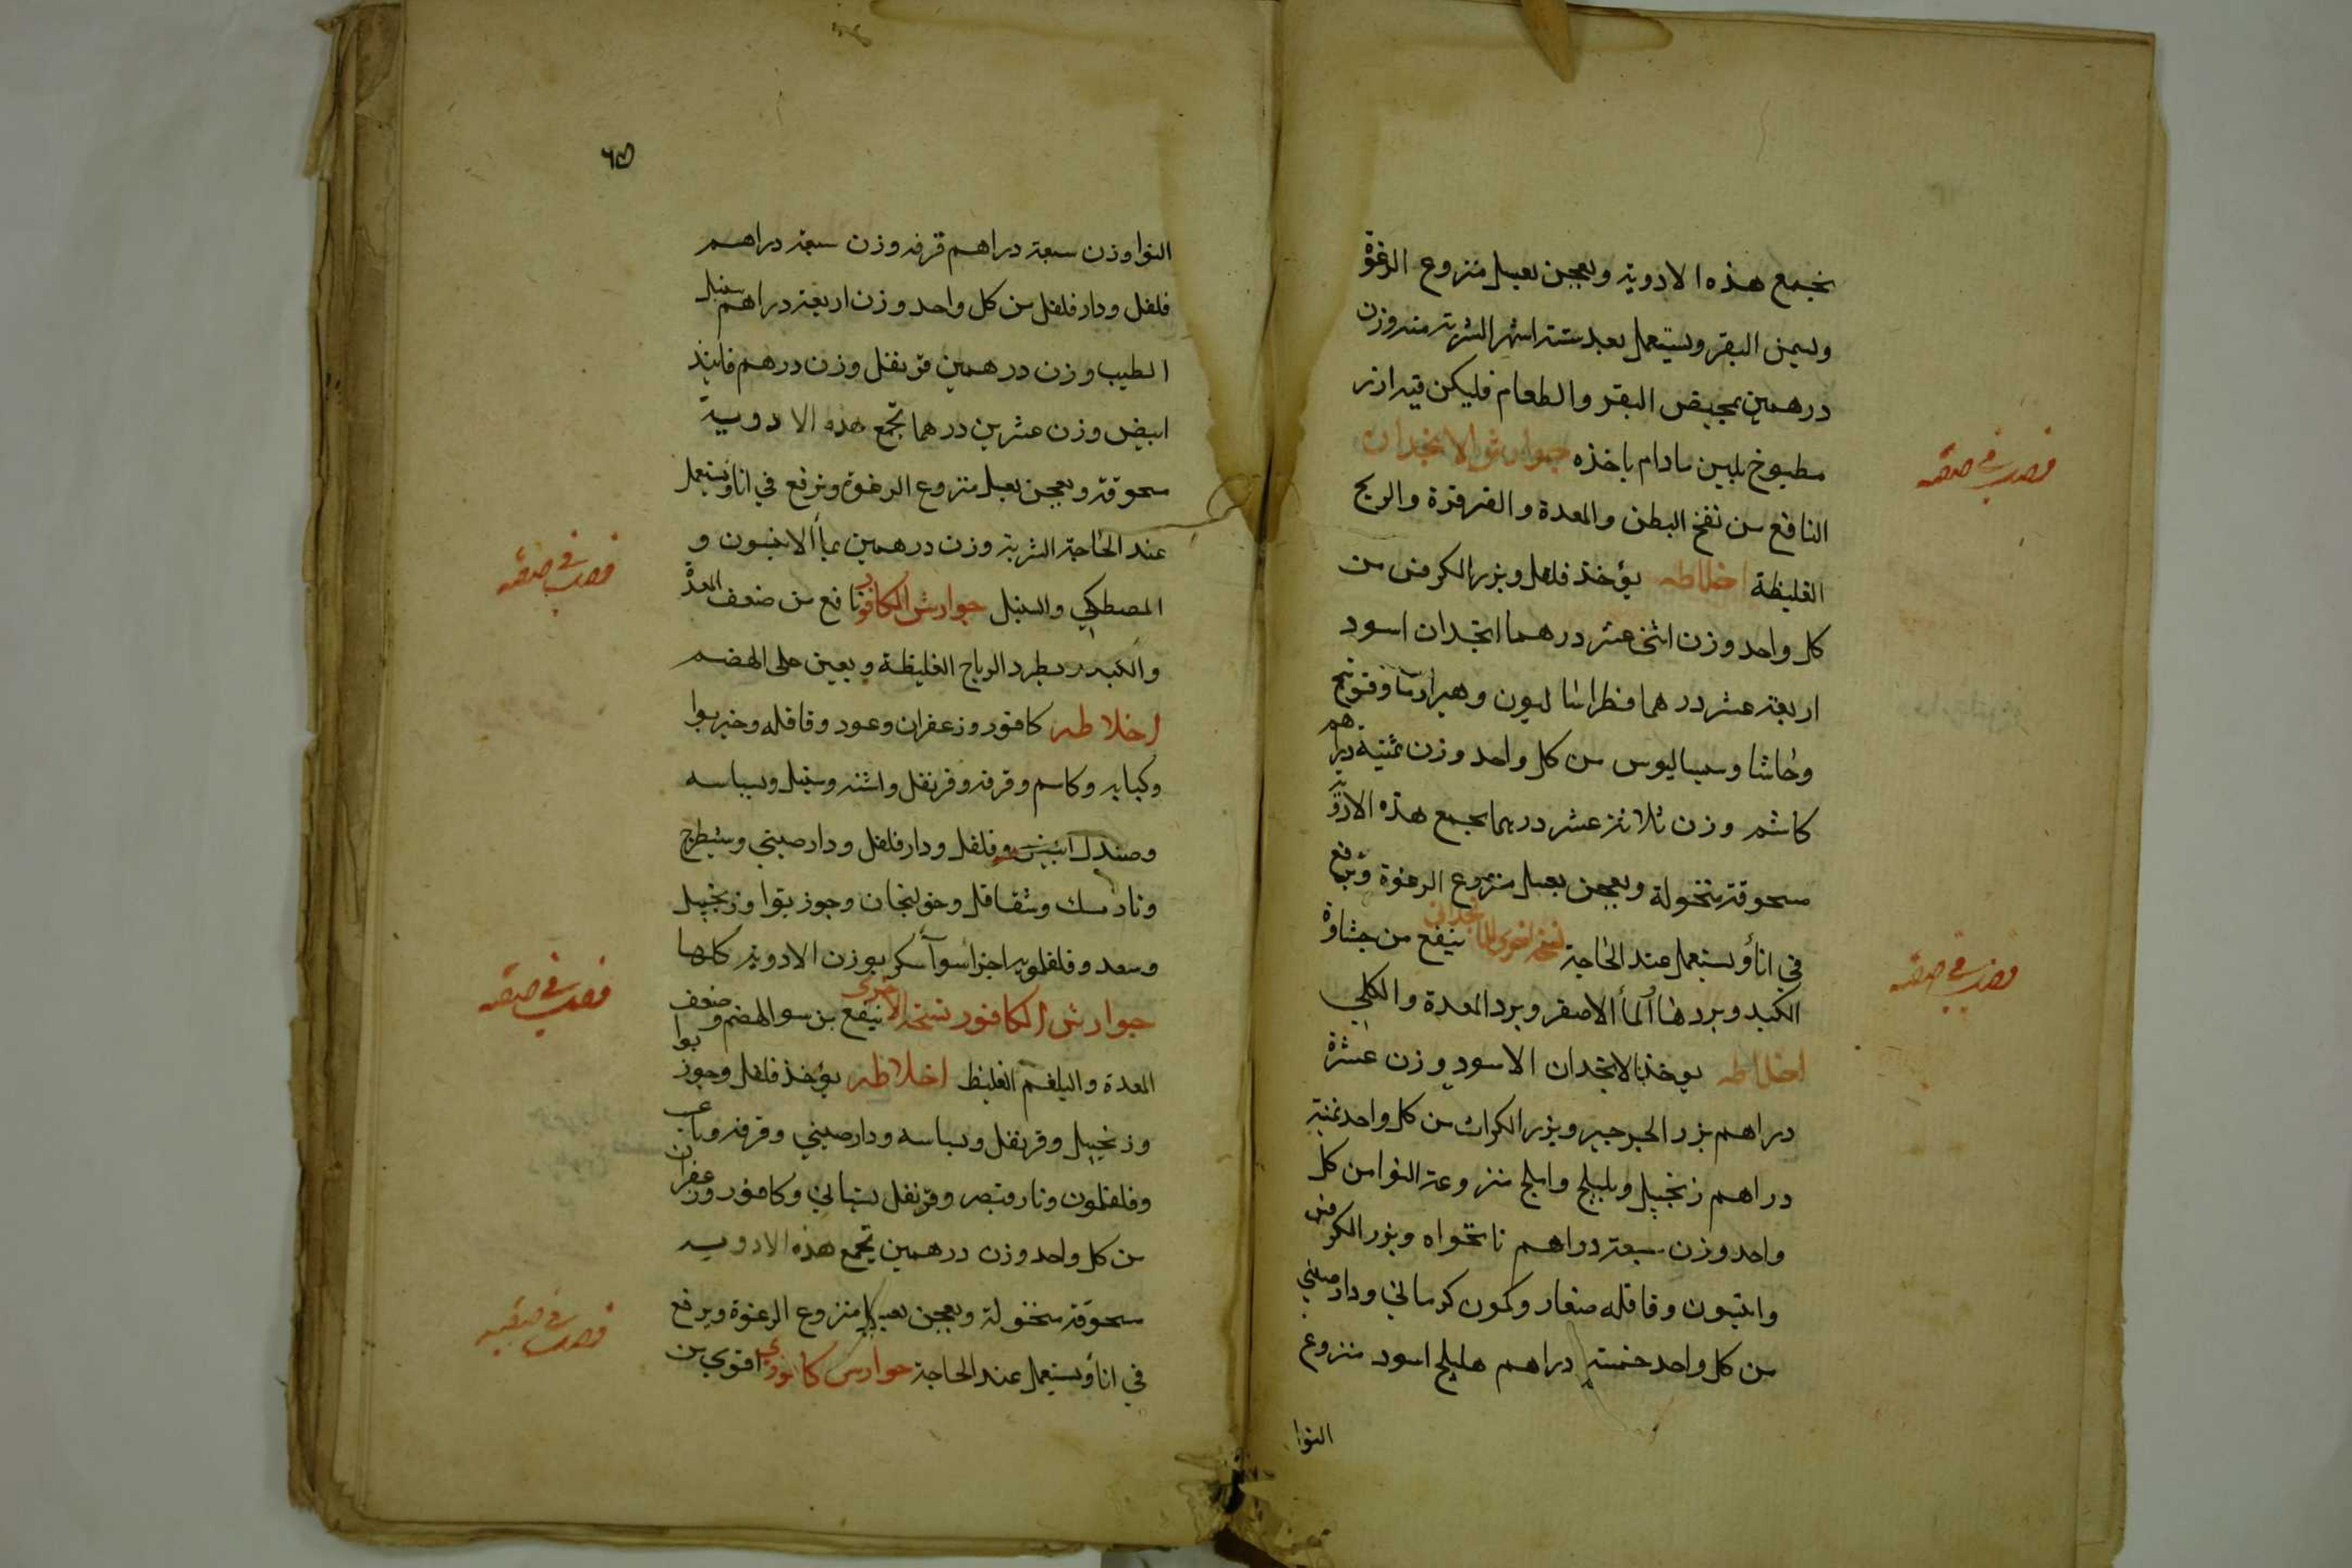 تجمع هذه الادوية ويعجن بعسل منزوع الرغوة
وبسمن البقر ويستعمل بعد ستة اشهر الشربة منه وزن
درهمين بمخيض البقر والطعام فليكن قنه ارز
مطبوخ بلبن مادام ياخذه جوارش الانجدان
النافع من نفخ البطن والمعدة والقرقرة والريح
الغليظة اخلاطه يؤخذ فلفل وبزر الكرفس من
كل واحد وزن اثنى عشر درهما انجدان اسود
اربعة عشر درهما فطراساليون وفوتنج
وحاشا وسيساليوس من كل واحد وزن ثمنية دراهم
كاشم وزن ثلاثة عشر درهما تجمع هذه الادوية
مسحوقة منخولة ويعجن بعسل منزوع الرغوة وترفع
في اناء ويستعمل عند الحاجة نسخة اخرى للانجداني ينفع من جشاوة
الكبد وبردها الماء الاصفر وبرد المعدة والكلى
اخلاطه يؤخذ الانجدان الاسود وزن عشرة
دراهم بزر الجرجير وبزر الكراث من كل واحد ثمنية
دراهم زنجبيل وبليلج واملج منزوعة النوا من كل
واحد وزن سبعة دراهم نانخواه وبزر الكرفس
وانيسون وقاقله صغار وكمون كرماني ودارصيني
من كل واحد خمسة دراهم هليلج اسود منزوع
النوا
فصل في صنعه
فصل في صنعه
النوا وزن سبعة دراهم قرفه وزن سبعة دراهم
فلفل ودار فلفل من كل واحد وزن اربعة دراهم سنبل
الطيب وزن درهمين قرنفل وزن درهم فانيذ
ابيض وزن عشرين درهما تجمع هذه الادوية
مسحوقة ويعجن بعسل منزوع الرغوة وترفع في اناء ويستعمل
عند الحاجة الشربة وزن درهمين بماء الانيسون و
المصطكي والسنبل جوارش الكافور نافع من ضعف المعدة
والكبد ويطرد الرياح الغليظة ويعين على الهضم
اخلاطه كافور وزعفران وعود وقاقله وخيربوا
وكبابه وكاسم وقرفه وقرنفل واشنه وسنبل وبسباسه
وصندل ابيض وفلفل ودار فلفل ودارصيني وشيطرج
ونارمسك وشقاقل وخولنجان وجوز بوا وزنجبيل
وسعد وفلفلمويه اجزا سوآ سكر بوزن الادوية كلها
جوارش الكافور نسخة الاخرى ينفع من سو الهضم وضعف
المعدة والبلغم الغليظ اخلاطه يؤخذ فلفل وجوز بوا
وزنجبيل وقرنفل وبسباسه ودارصيني وقرفه
وفلفلمون وقرنفل بستاني وكافور وزعفران
من كل واحد وزن درهمين تجمع هذه الادوية
مسحوقة منخولة ويعجن بعسل منزوع الرغوة ويرفع
في اناء ويستعمل عند الحاجة جوارش كافوري اقوي من
فصل في صنعه
فصل في صنعه
فصل في صنعه